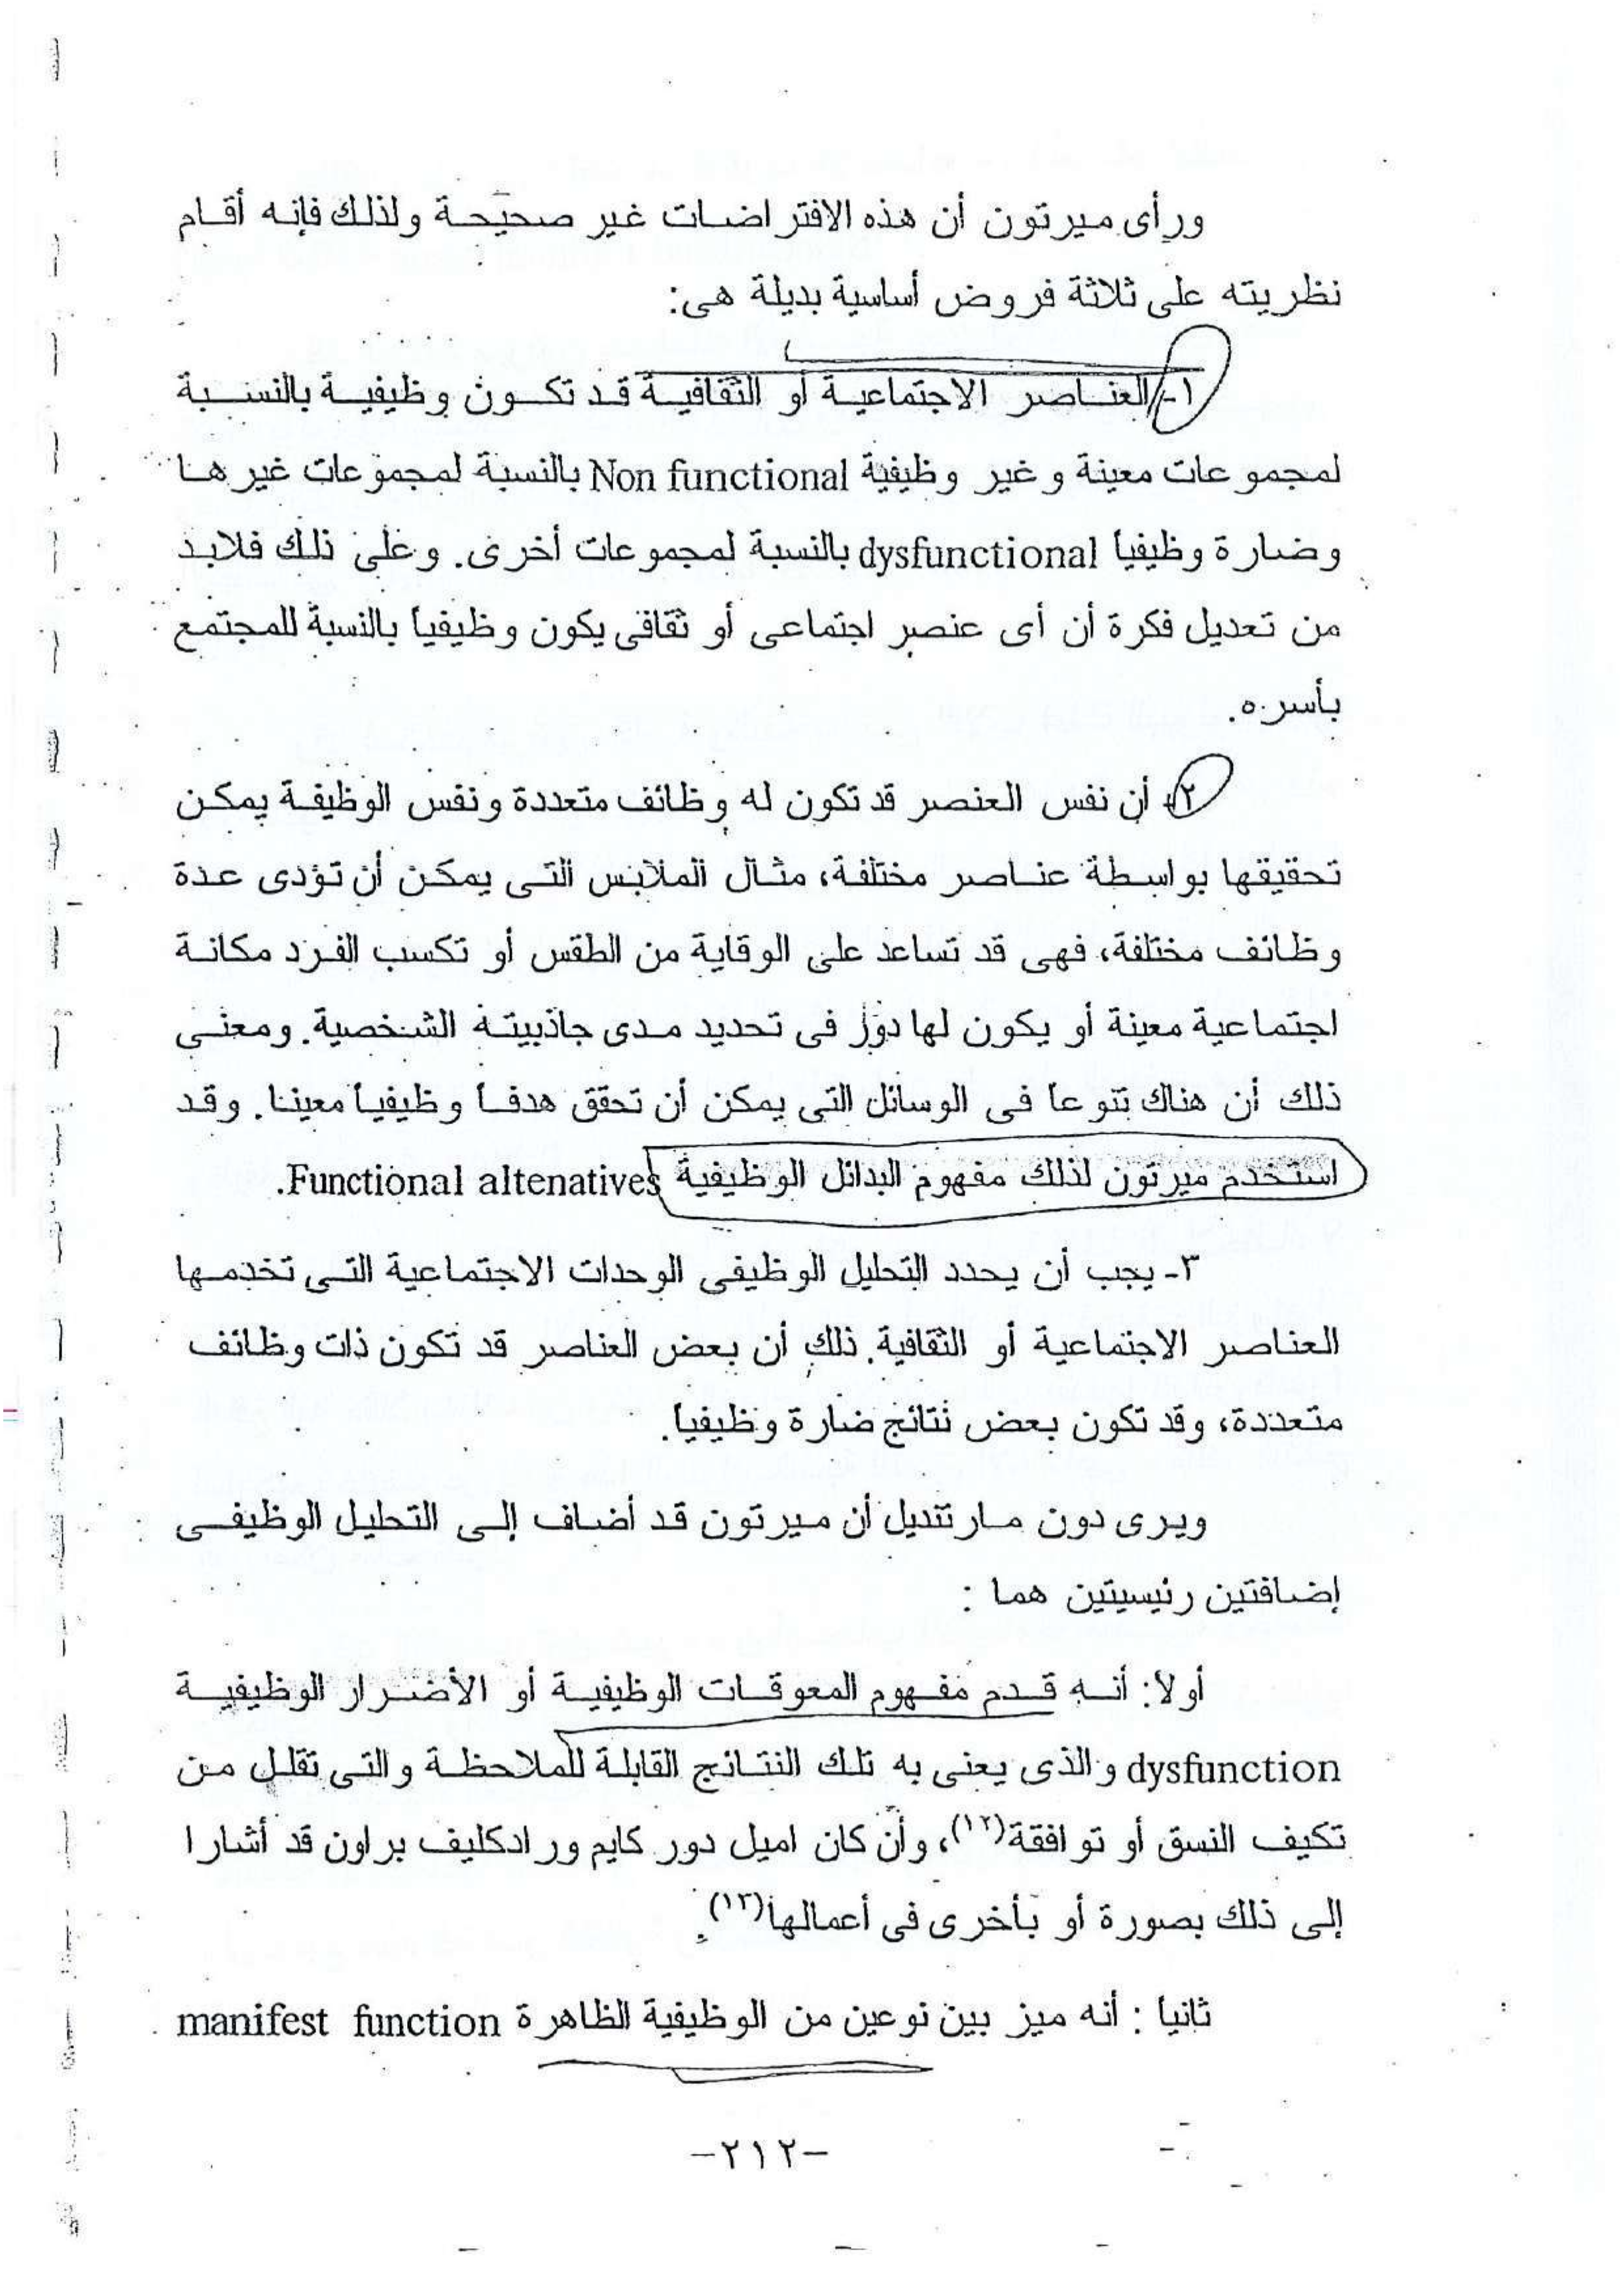 ورأى ميرتون أن هذه الافتراضات غير صحيحة ولذلك فإنه أقام
نظريته على ثلاثة فروض أساسية بديلة هى:
١- العناصر الاجتماعية أو الثقافية قد تكون وظيفية بالنسبة
لمجموعات معينة وغير وظيفية Non functional بالنسبة لمجموعات غيرها
وضارة وظيفيا dysfunctional بالنسبة لمجموعات أخرى. وعلى ذلك فلابد
من تعديل فكرة أن أى عنصر اجتماعى أو ثقافى يكون وظيفياً بالنسبة للمجتمع
بأسره.
٢- أن نفس العنصر قد تكون له وظائف متعددة ونفس الوظيفة يمكن
تحقيقها بواسطة عناصر مختلفة، مثال الملابس التى يمكن أن تؤدى عدة
وظائف مختلفة، فهى قد تساعد على الوقاية من الطقس أو تكسب الفرد مكانة
اجتماعية معينة أو يكون لها دور فى تحديد مدى جاذبيته الشخصية. ومعنى
ذلك أن هناك تنوعا فى الوسائل التى يمكن أن تحقق هدفا وظيفياً معينا. وقد
استخدم ميرتون لذلك مفهوم البدائل الوظيفية Functional altenatives.
٣- يجب أن يحدد التحليل الوظيفى الوحدات الاجتماعية التى تخدمها
العناصر الاجتماعية أو الثقافية. ذلك أن بعض العناصر قد تكون ذات وظائف
متعددة، وقد تكون بعض نتائج ضارة وظيفيا.
ويرى دون مارتنديل أن ميرتون قد أضاف إلى التحليل الوظيفى
إضافتين رئيسيتين هما :
أولا: أنه قدم مفهوم المعوقات الوظيفية أو الأضرار الوظيفية
dysfunction والذى يعنى به تلك النتائج القابلة للملاحظة والتى تقلل من
تكيف النسق أو توافقة(١٢)، وأن كان اميل دور كايم ورادكليف براون قد أشارا
إلى ذلك بصورة أو بأخرى فى أعمالها(١٣).
ثانيا : أنه ميز بين نوعين من الوظيفية الظاهرة manifest function
-٢١٢-